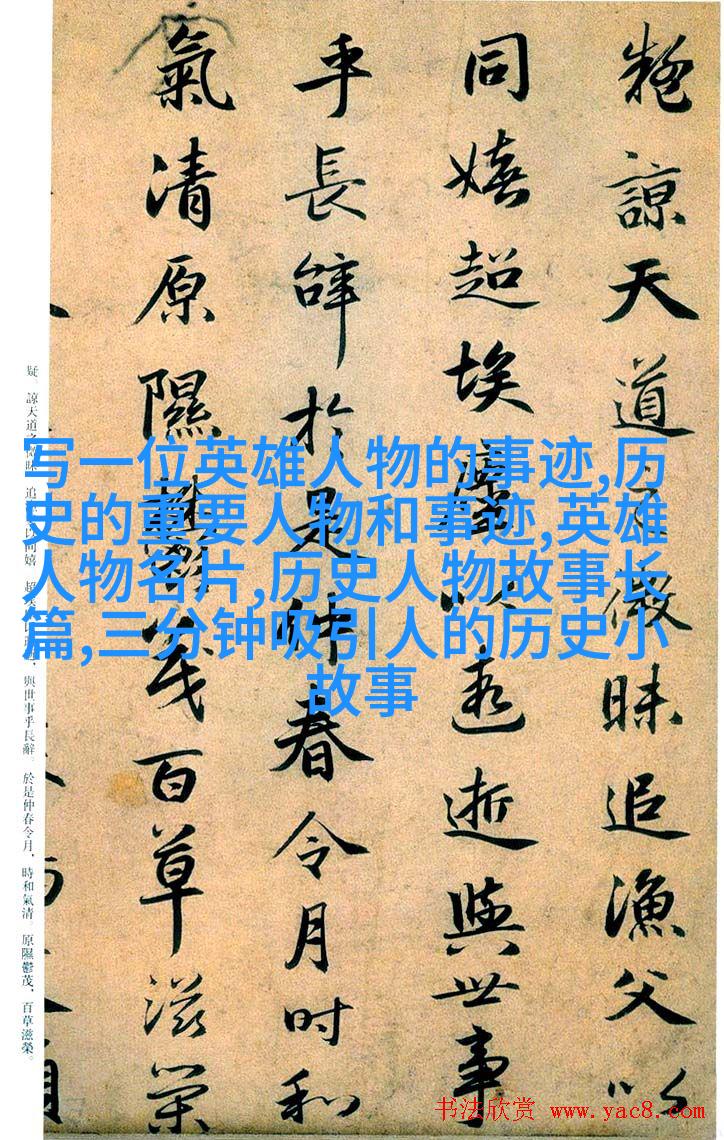 疑諒天道之微昧追漁父以
同嬉超埃塵以遐逝與世事
乎長辭於是仲春令月時和
氣清原隰鬱茂百草滋榮
写一位英雄人物的事迹,历
史的重要人物和事迹,英雄
人物名片,历史人物故事长
篇,三分钟吸引人的历史小
故事
疑。諒天道之微昧，追以同嬉，超，與世事乎長辭。於是仲春令月，時和氣清。原隰鬱茂，百草滋榮。
书法欣赏 www.yac8.com